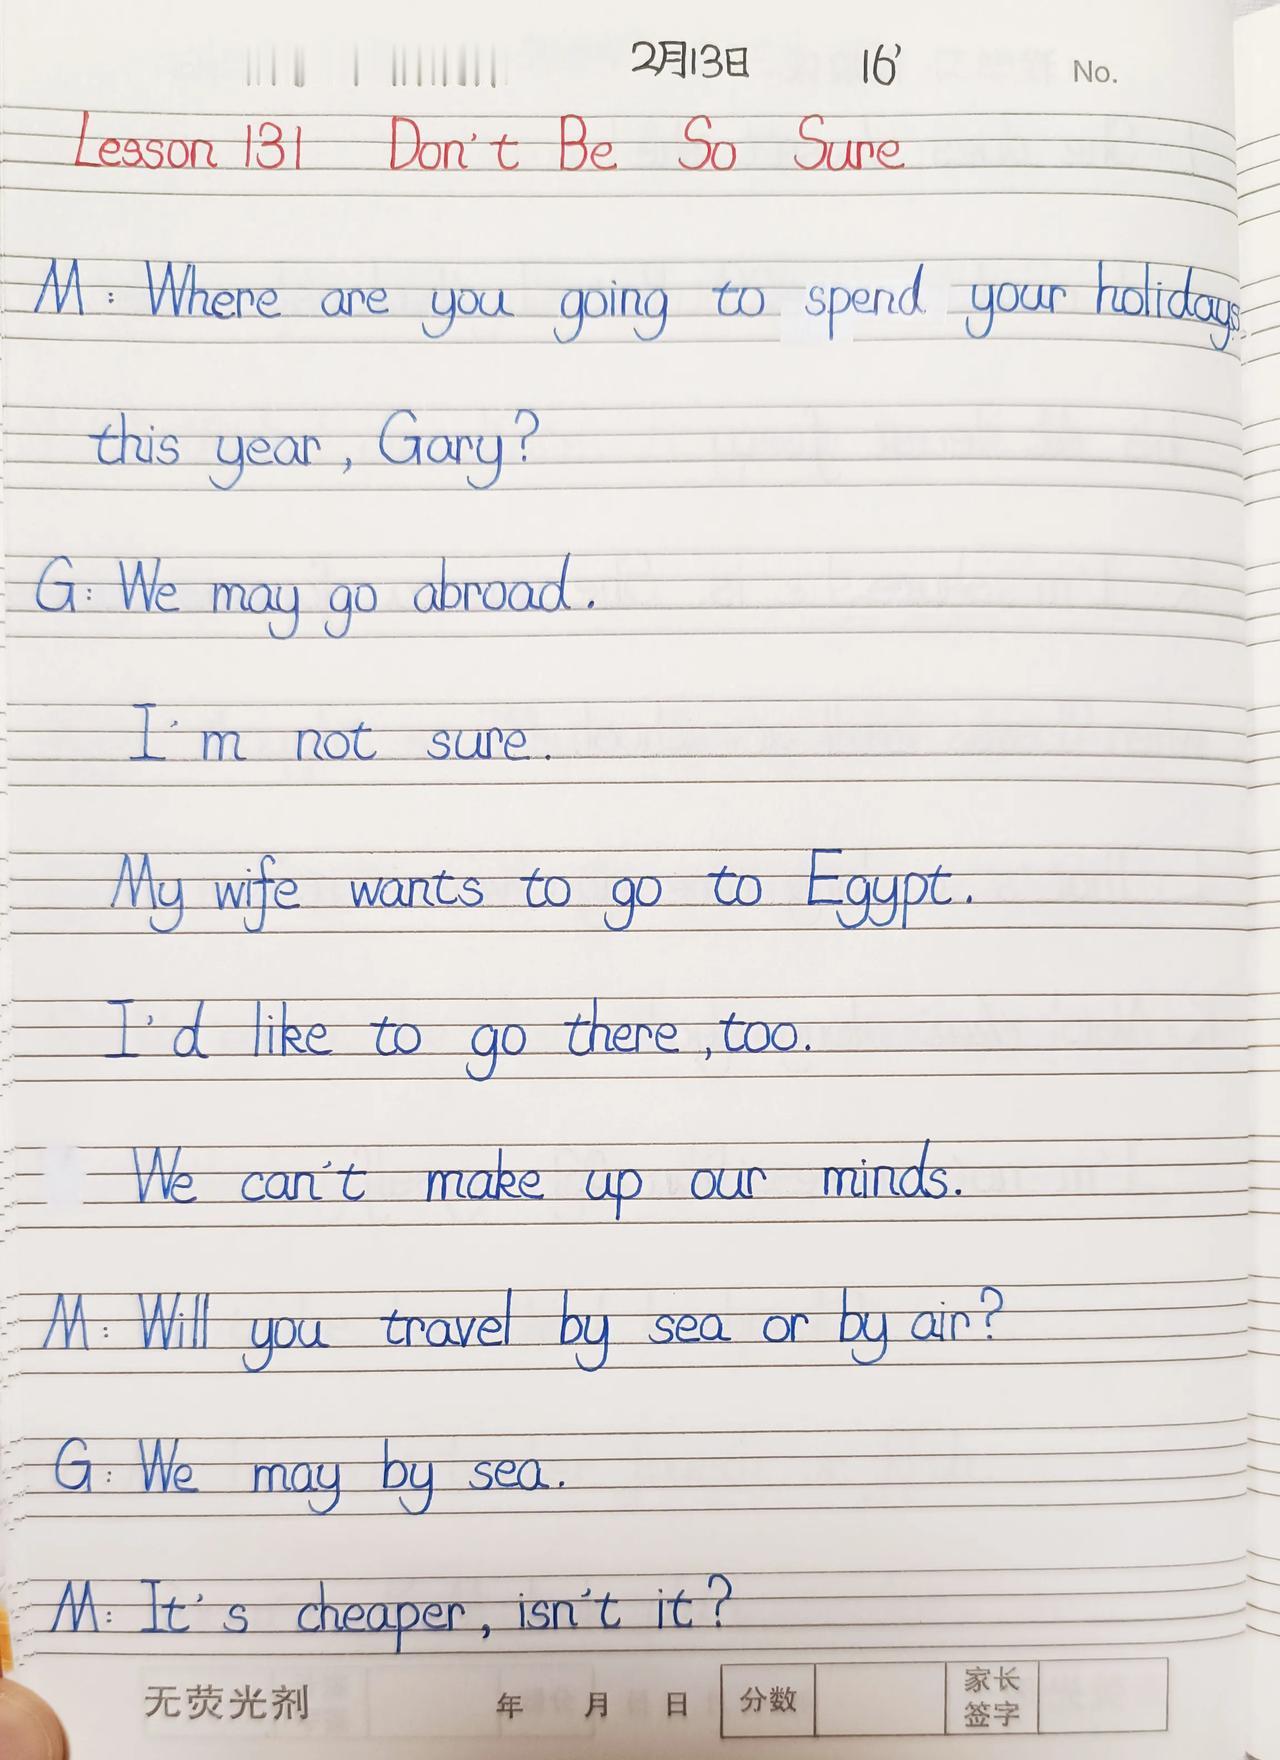 2月13日 16' No.
Lesson 131 Don't Be So Sure
M: Where are you going to spend your holidays
this year, Gary?
G: We may go abroad.
I'm not sure.
My wife wants to go to Egypt.
I'd like to go there, too.
We can't make up our minds.
M: Will you travel by sea or by air?
G: We may by sea.
M: It's cheaper, isn't it?
无荧光剂 年 月 日 分数 家长签字